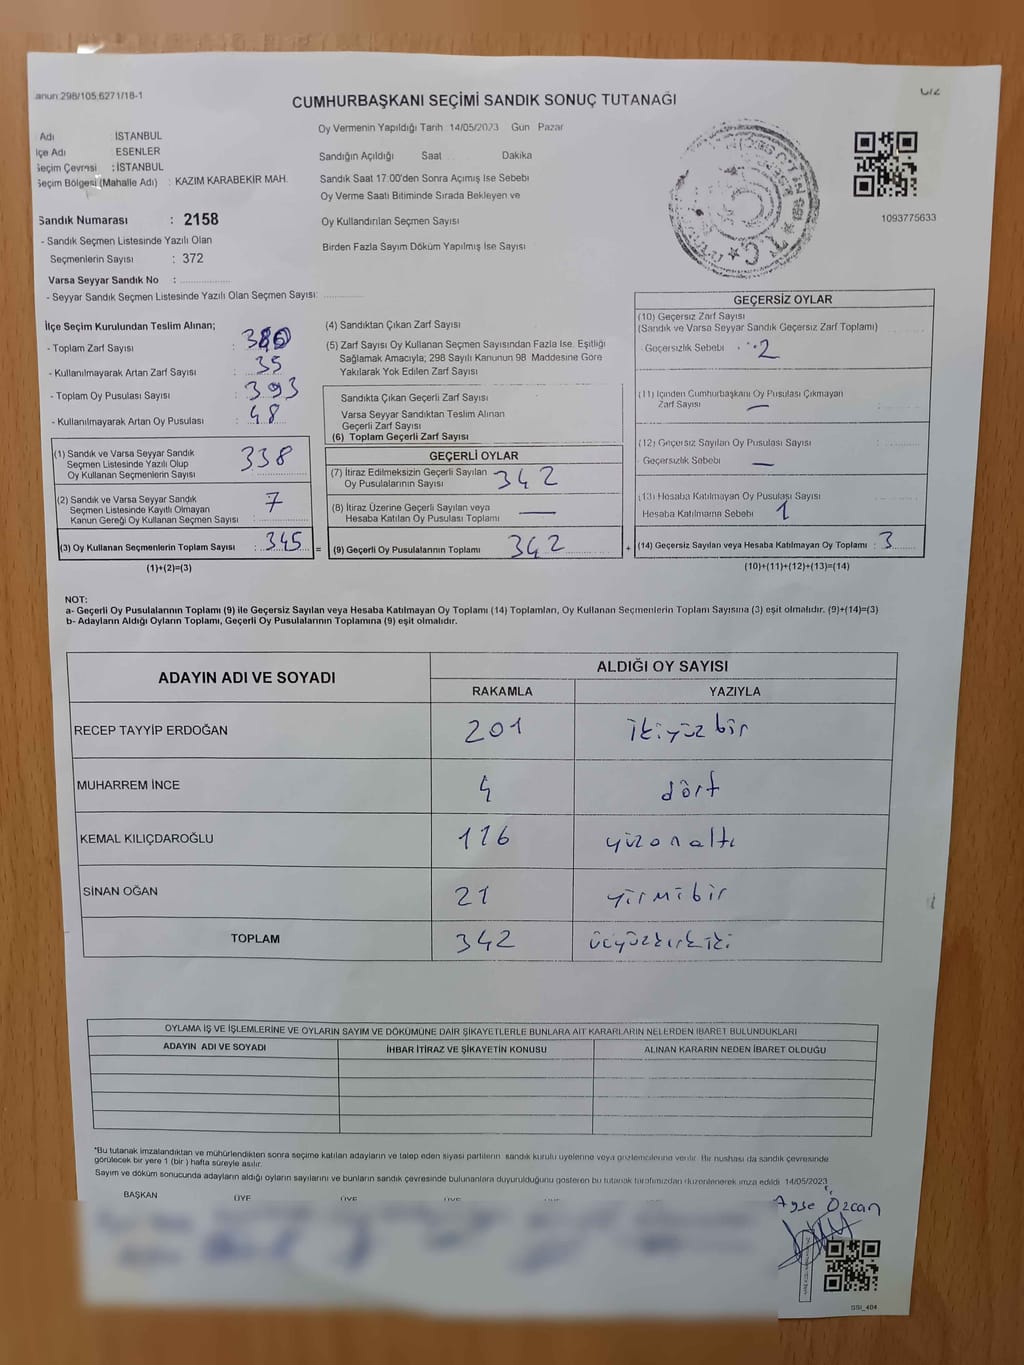 anun:298/105;6271/18-1
CUMHURBAŞKANI SEÇİMİ SANDIK SONUÇ TUTANAĞI
Adı : İSTANBUL
lçe Adı : ESENLER
Seçim Çevresi : İSTANBUL
Seçim Bölgesi (Mahalle Adı) : KAZIM KARABEKİR MAH.
Sandık Numarası : 2158
- Sandık Seçmen Listesinde Yazılı Olan
Seçmenlerin Sayısı : 372
Varsa Seyyar Sandık No :
- Seyyar Sandık Seçmen Listesinde Yazılı Olan Seçmen Sayısı:
Oy Vermenin Yapıldığı Tarih 14/05/2023 Gün Pazar
Sandığın Açıldığı Saat Dakika
Sandık Saat 17:00'den Sonra Açımış İse Sebebi
Oy Verme Saati Bitiminde Sırada Bekleyen ve
Oy Kullandırılan Seçmen Sayısı
Birden Fazla Sayım Döküm Yapılmış İse Sayısı
1093775633
İlçe Seçim Kurulundan Teslim Alınan;
- Toplam Zarf Sayısı : 380
- Kullanılmayarak Artan Zarf Sayısı : 35
- Toplam Oy Pusulası Sayısı : 393
- Kullanılmayarak Artan Oy Pusulası : 48
(1) Sandık ve Varsa Seyyar Sandık
Seçmen Listesinde Yazılı Olup
Oy Kullanan Seçmenlerin Sayısı 338
(2) Sandık ve Varsa Seyyar Sandık
Seçmen Listesinde Kayıtlı Olmayan
Kanun Gereği Oy Kullanan Seçmen Sayısı : 7
(3) Oy Kullanan Seçmenlerin Toplam Sayısı : 345 =
(1)+(2)=(3)
(4) Sandıktan Çıkan Zarf Sayısı
(5) Zarf Sayısı Oy Kullanan Seçmen Sayısından Fazla İse. Eşitliği
Sağlamak Amacıyla; 298 Sayılı Kanunun 98 Maddesine Göre
Yakılarak Yok Edilen Zarf Sayısı
Sandıkta Çıkan Geçerli Zarf Sayısı
Varsa Seyyar Sandıktan Teslim Alınan
Geçerli Zarf Sayısı
(6) Toplam Geçerli Zarf Sayısı
GEÇERLİ OYLAR
(7) İtiraz Edilmeksizin Geçerli Sayılan
Oy Pusulalarının Sayısı 342
(8) İtiraz Üzerine Geçerli Sayılan veya
Hesaba Katılan Oy Pusulası Toplamı —
(9) Geçerli Oy Pusulalarının Toplamı 342 +
GEÇERSİZ OYLAR
(10) Geçersiz Zarf Sayısı
(Sandık ve Varsa Seyyar Sandık Geçersiz Zarf Toplamı)
Geçersizlik Sebebi 2
(11) İçinden Cumhurbaşkanı Oy Pusulası Çıkmayan
Zarf Sayısı —
(12) Geçersiz Sayılan Oy Pusulası Sayısı
- Geçersizlik Sebebi —
(13) Hesaba Katılmayan Oy Pusulası Sayısı
Hesaba Katılmama Sebebi 1
(14) Geçersiz Sayılan veya Hesaba Katılmayan Oy Toplamı : 3
(10)+(11)+(12)+(13)=(14)
NOT:
a- Geçerli Oy Pusulalarının Toplamı (9) ile Geçersiz Sayılan veya Hesaba Katılmayan Oy Toplamı (14) Toplamları, Oy Kullanan Seçmenlerin Toplam Sayısına (3) eşit olmalıdır. (9)+(14)=(3)
b- Adayların Aldığı Oyların Toplamı, Geçerli Oy Pusulalarının Toplamına (9) eşit olmalıdır.
ADAYIN ADI VE SOYADI ALDIĞI OY SAYISI
RAKAMLA YAZIYLA
RECEP TAYYİP ERDOĞAN 201 ikiyüz bir
MUHARREM İNCE 4 dört
KEMAL KILIÇDAROĞLU 116 yüzonaltı
SİNAN OĞAN 21 yirmibir
TOPLAM 342 üçyüzkırkiki
OYLAMA İŞ VE İŞLEMLERİNE VE OYLARIN SAYIM VE DÖKÜMÜNE DAİR ŞİKAYETLERLE BUNLARA AİT KARARLARIN NELERDEN İBARET BULUNDUKLARI
ADAYIN ADI VE SOYADI İHBAR İTİRAZ VE ŞİKAYETİN KONUSU ALINAN KARARIN NEDEN İBARET OLDUĞU
*Bu tutanak imzalandıktan ve mühürlendikten sonra seçime katılan adayların ve talep eden siyasi partilerin sandık kurulu üyelerine veya gözlemcilerine verilir. Bir nushası da sandık çevresinde
görülecek bir yere 1 (bir) hafta süreyle asılır.
Sayım ve döküm sonucunda adayların aldığı oyların sayılarını ve bunların sandık çevresinde bulunanlara duyurulduğunu gösteren bu tutanak tarafımızdan düzenlenerek imza edildi 14/05/2023
BAŞKAN ÜYE ÜYE ÜYE
Ayşe Özcan
GSI_404